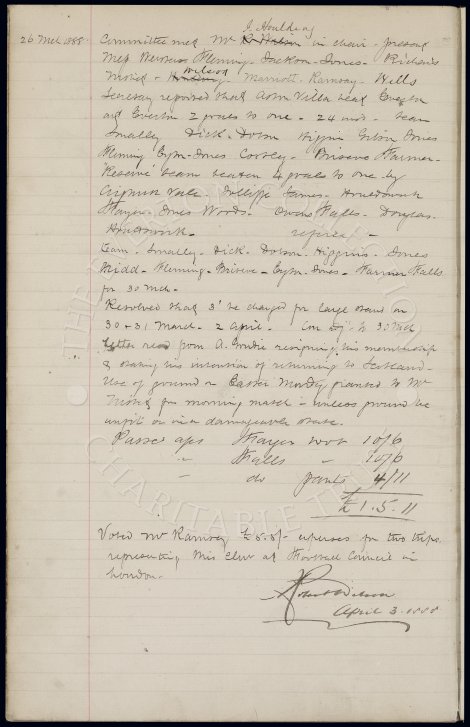 26 Mch 1888
J. Houlding
Committee met Mr R Wilson in chair - present
Mess Fleming - Jackson - Jones - Richards
Wilson
Marriott - Ramsay - Wells
Secretary reported that Aston Villa beat Everton
at Everton 2 goals to one - 24 inst - team
Smalley Dick - Dobson Higgins Gibson Jones
Fleming Izatt - Jones Corley - Briscoe Farmer -
"Reserve" team beaten 4 goals to one by
Jolliffe James -
Jones Woods - Falls - Douglas -
referee -
Team - Smalley - Dick - Dobson - Higgins - Jones
Fleming - Briscoe - Izatt - Jones - Farmer Falls
for 30 Mch -
Resolved that 3d be charged for large stand on
30 + 31 March - 2 April. Com adj. to 30 Mch
Letter read from A. Goudie resigning his membership
& stating his intention of returning to Scotland -
Use of ground on Easter Monday granted to Mr
for morning match - unless ground be
unfit or in a damageable state.
Passed a/cs boot 10/6
" Falls " 10/6
" do pants 4/11
£1.5.11
Voted Mr Ramsay £5.5/- expenses for two trips
representing this club at Football Council in
London.
Robert Wilson
April 3. 1888
THE EVERTON COLLECTION
CHARITABLE TRUST